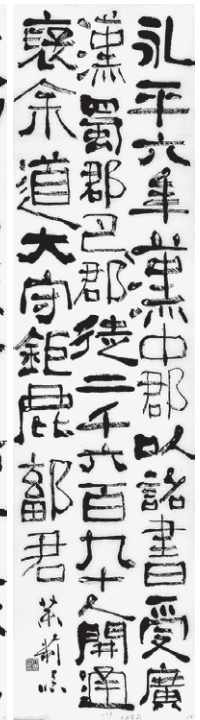 永平六年漢中郡以詔書受廣
漢蜀郡巴郡徒二千六百九十人開通
褒余道大守鉅鹿鄐君